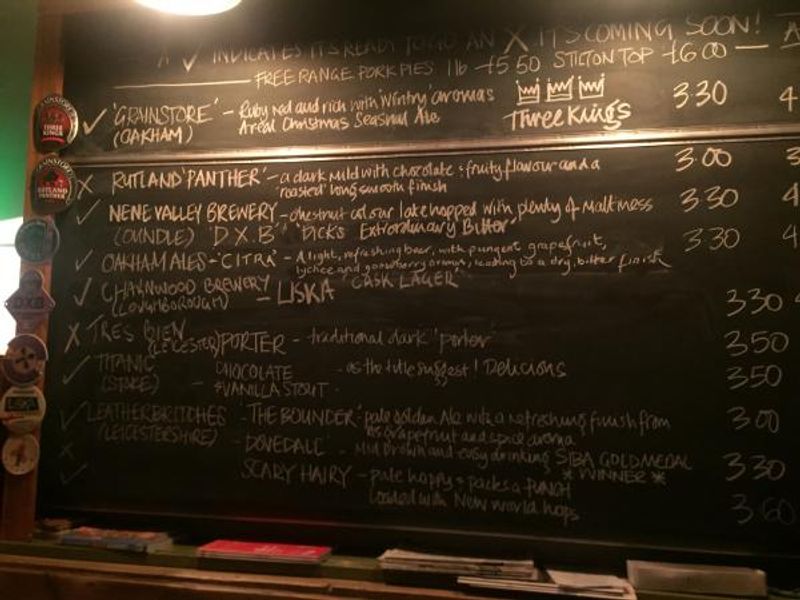 A ✓ INDICATES IT'S READY TO GO AN X IT'S COMING SOON!
FREE RANGE PORK PIES 1lb £5.50 STILTON TOP £6.00
✓ 'GRAINSTORE' - Ruby Red and rich with 'Wintry' aromas 3.30 4
(OAKHAM) A real Christmas Seasonal Ale Three Kings
X RUTLAND 'PANTHER' - a dark Mild with chocolate & fruity flavour and a 3.00 3
roasted long smooth finish
✓ NENE VALLEY BREWERY - chestnut colour late hopped with plenty of Maltiness 3.30 4
(OUNDLE) 'D.X.B' 'DICKS Extrordinary Bitter' 3.30 4
✓ OAKHAM ALES - 'CITRA' - A light, refreshing beer, with pungent grapefruit,
lychee and gooseberry aromas, leading to a dry, bitter finish
✓ CHARNWOOD BREWERY - LISKA 'CASK LAGER'
(LOUGHBOROUGH) 3.30 4
X TRES BIEN
(LEICESTER) PORTER - traditional dark 'porter' 3.50
✓ TITANIC CHOCOLATE - as the title suggest! Delicious 3.50
(STOKE) - & VANILLA STOUT.
✓ LEATHERBRITCHES - 'THE BOUNDER' - pale golden Ale with a refreshing finish from 3.00
(LEICESTERSHIRE) its Grapefruit and spice aroma
X - DOVEDALE - Mid Brown and easy drinking SIBA GOLD MEDAL 3.30
✓ SCARY HAIRY - pale hoppy & packs a PUNCH * WINNER *
Loaded with New World hops 3.60
THREE KINGS
RUTLAND PANTHER
DXB